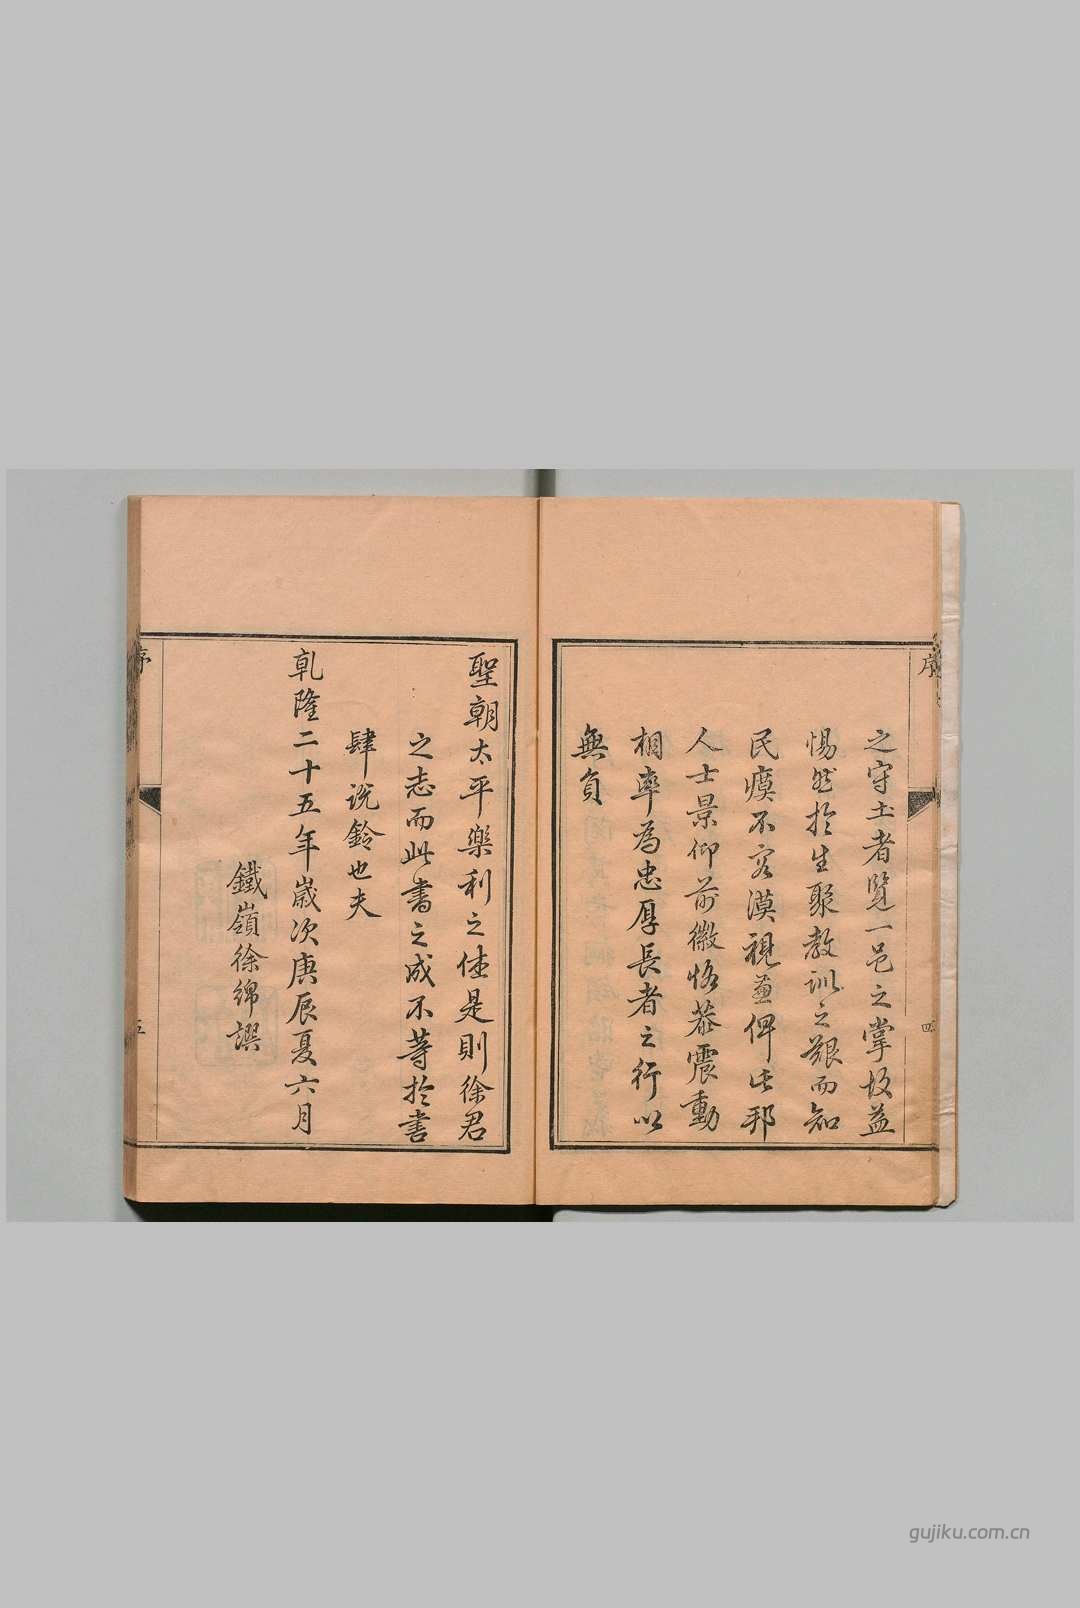 序
四
之守土者覽一邑之掌故益
惕然於生聚教訓之艱而知
民瘼不容漠視並俾此邦
人士景仰前徽恪恭震動
相率為忠厚長者之行以
無負
聖朝太平樂利之佳是則徐君
之志而此書之成不等於書
肆說鈴也夫
乾隆二十五年歲次庚辰夏六月
鐵嶺徐綿譔
序
五
gujiku.com.cn